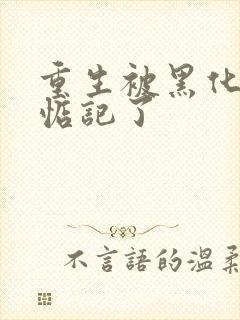 重生被黑化
惦記了
不言語的溫柔